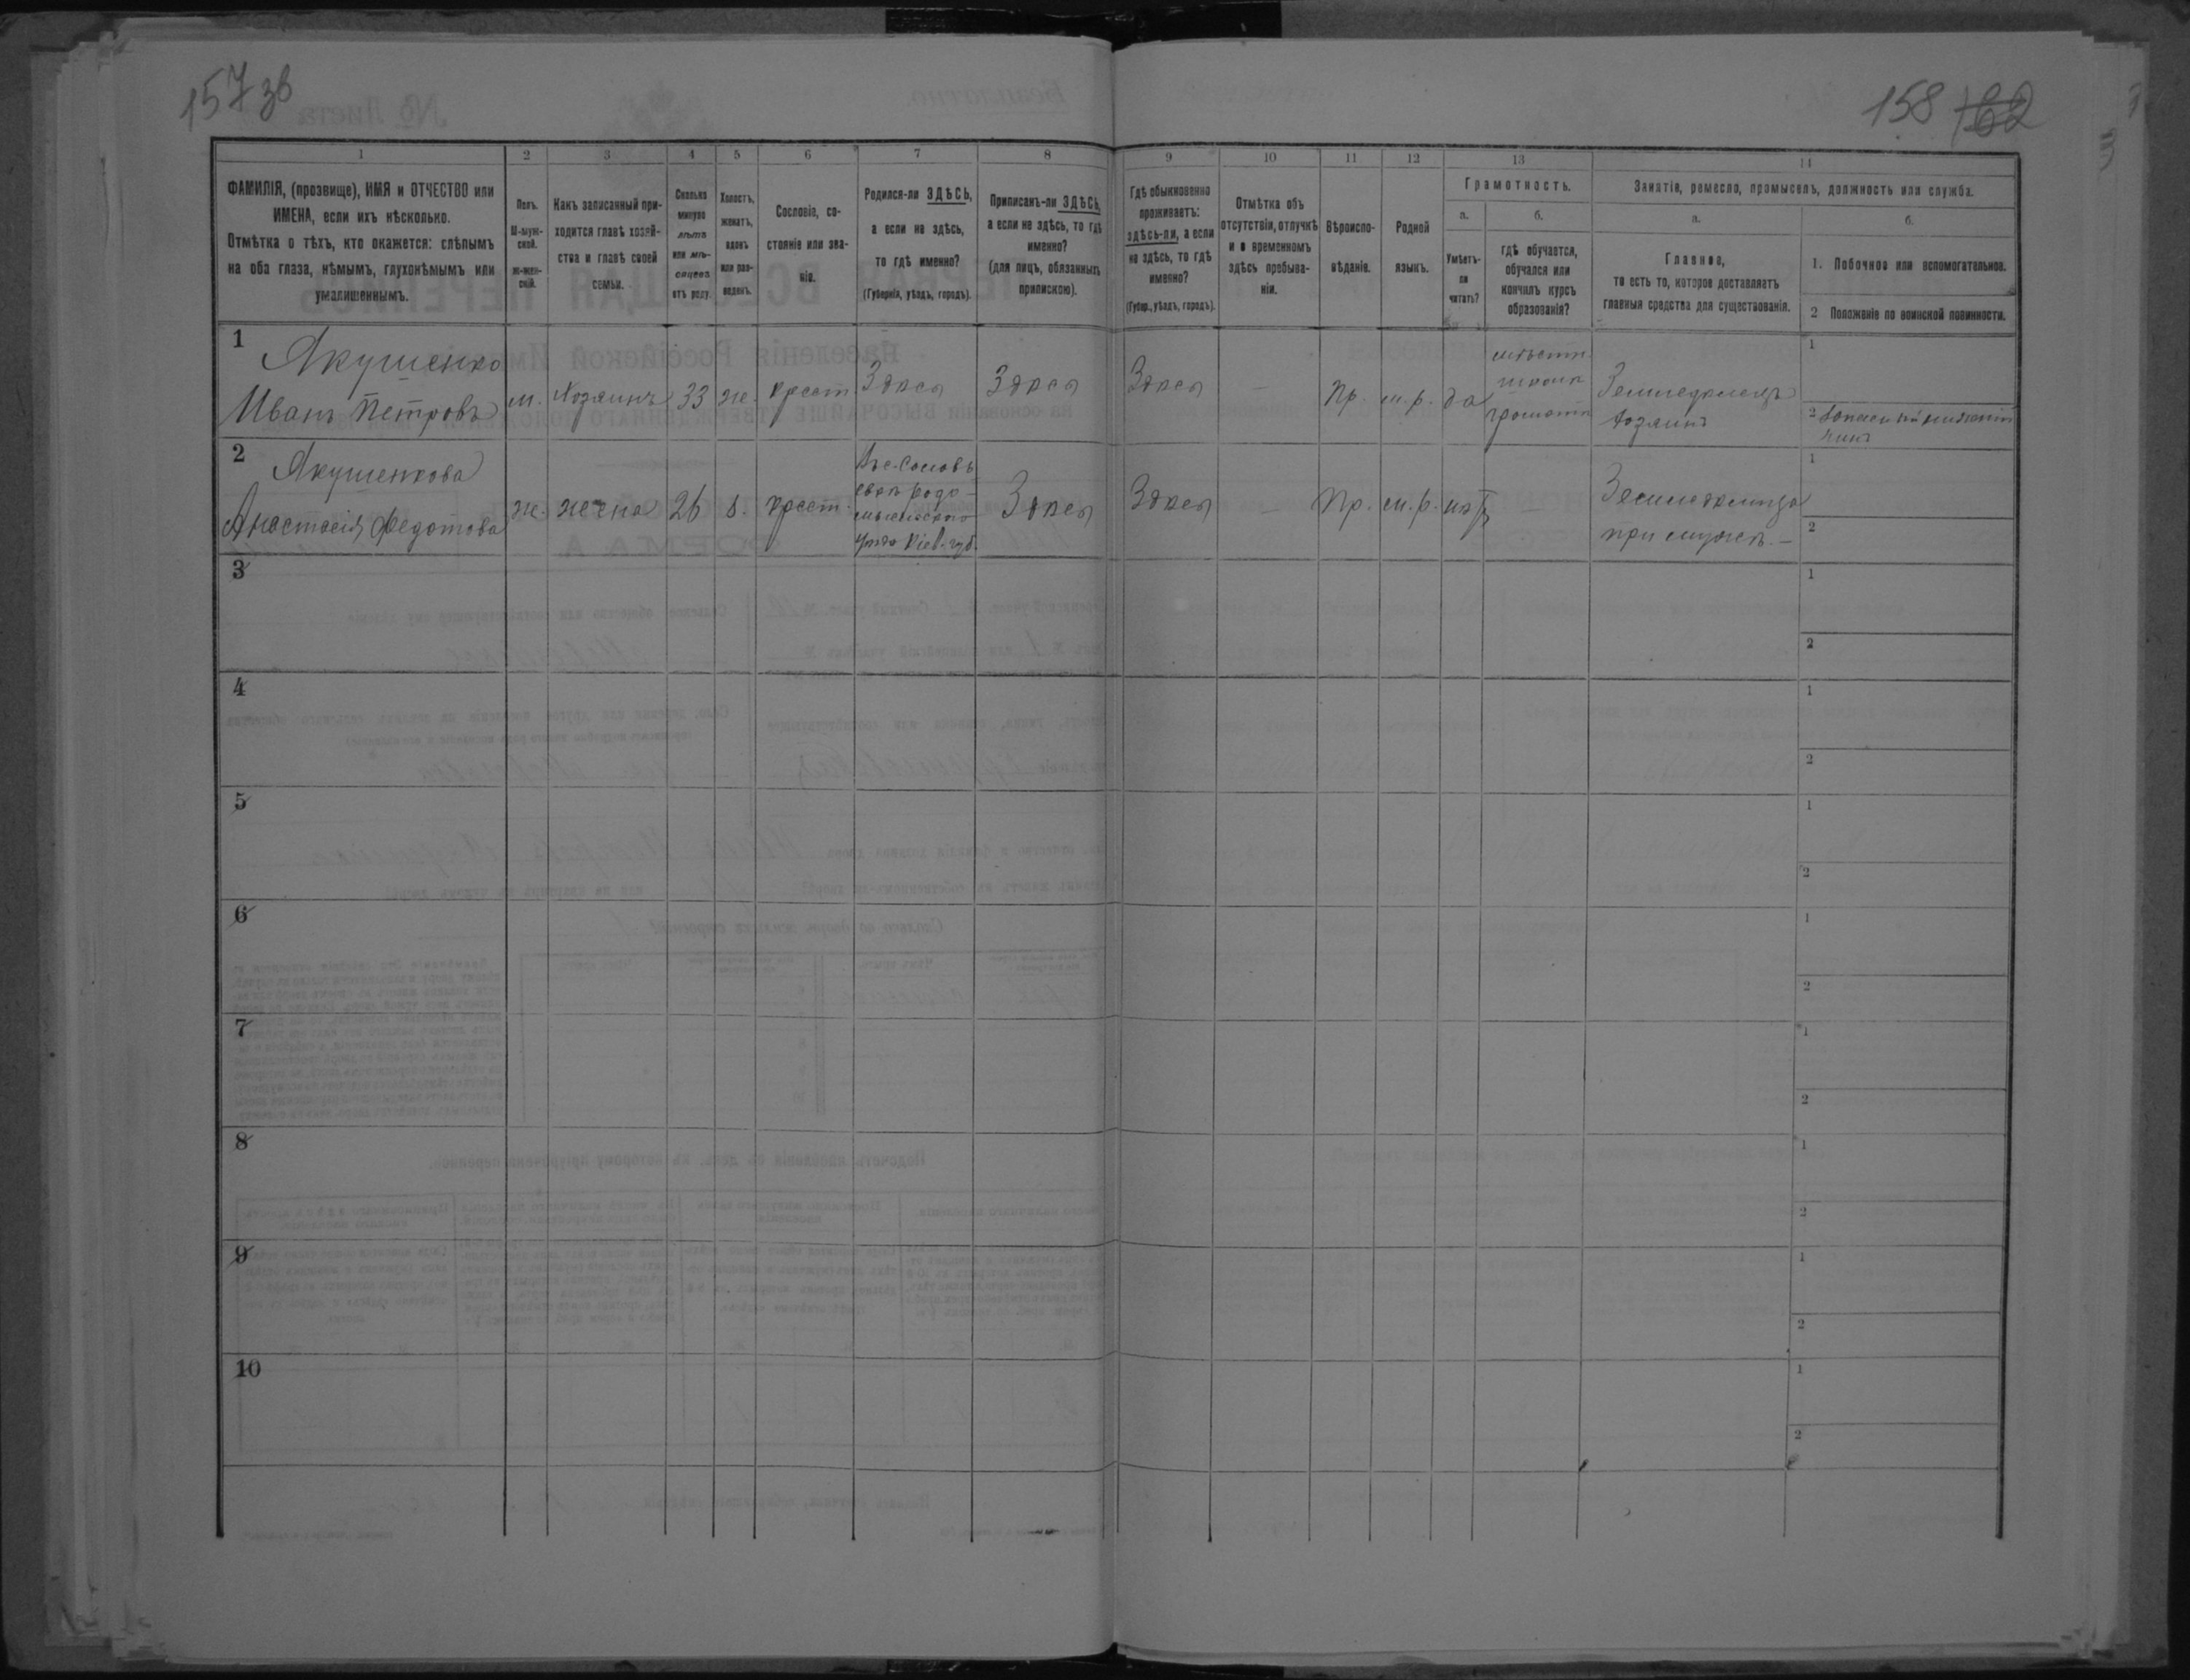 157 зв
158 162
1
2
3
4
5
6
7
8
9
10
11
12
13
14
ФАМИЛІЯ, (прозвище), ИМЯ и ОТЧЕСТВО или
ИМЕНА, если ихъ нѣсколько.
Отмѣтка о тѣхъ, кто окажется: слѣпымъ
на оба глаза, нѣмымъ, глухонѣмымъ или
умалишеннымъ.
Полъ.
М-муж-
ской.
Ж-жен-
скій.
Какъ записанный при-
ходится главѣ хозяй-
ства и главѣ своей
семьи.
Сколько
минуло
лѣтъ
или мѣ-
сяцевъ
отъ роду.
Холостъ,
женатъ,
вдовъ
или раз-
веденъ.
Сословіе, со-
стояніе или зва-
ніе.
Родился-ли ЗДѢСЬ,
а если не здѣсь,
то гдѣ именно?
(Губернія, уѣздъ, городъ).
Приписанъ-ли ЗДѢСЬ,
а если не здѣсь, то гдѣ
именно?
(для лицъ, обязанныхъ
припискою).
Гдѣ обыкновенно
проживаетъ:
здѣсь-ли, а если
не здѣсь, то гдѣ
именно?
(Губер., уѣздъ, городъ).
Отмѣтка объ
отсутствіи, отлучкѣ
и о временномъ
здѣсь пребыва-
ніи.
Вѣроиспо-
вѣданіе.
Родной
языкъ.
Грамотность.
а.
Умѣетъ-
ли
читать?
б.
гдѣ обучается,
обучался или
кончилъ курсъ
образованія?
Занятіе, ремесло, промыселъ, должность или служба.
а.
Главное,
то есть то, которое доставляетъ
главныя средства для существованія.
б.
1. Побочное или вспомогательное.
2 Положеніе по воинской повинности.
1
Якушенко
Иванъ Петровъ
м.
Хозяинъ
33
же.
крест.
Здѣсь
Здѣсь
Здѣсь
—
Пр.
м.р.
да
школа
грамоти
Земледѣлецъ
хозяинъ
1
2
2
Якушенкова
Анастасія Федотова
же.
жена
26
з.
крест.
Радо-
мысльскаго
уѣзда Кіев. губ.
Здѣсь
Здѣсь
—
Пр.
м.р.
нѣтъ
Земледѣлица
при мужѣ. —
1
2
3
1
2
4
1
2
5
1
2
6
1
2
7
1
2
8
1
2
9
1
2
10
1
2